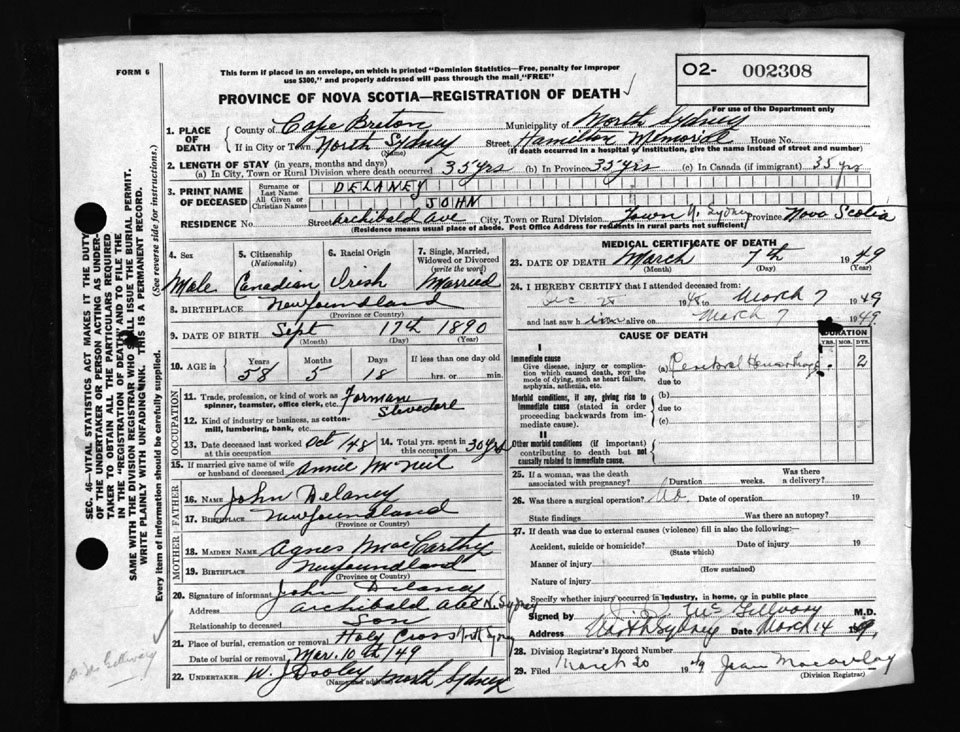 FORM 6
This form if placed in an envelope, on which is printed "Dominion Statistics—Free, penalty for improper
use $300," and properly addressed will pass through the mail "FREE"
O2- 002308
PROVINCE OF NOVA SCOTIA—REGISTRATION OF DEATH ✓
For use of the Department only
1. PLACE OF DEATH
County of Cape Breton Municipality of North Sydney
If in City or Town North Sydney Street Hamilton Memorial House No.
(Name) (If death occurred in a hospital of institution, give the name instead of street and number)
2. LENGTH OF STAY (in years, months and days)
(a) In City, Town or Rural Division where death occurred 35 yrs (b) In Province 35 yrs (c) In Canada (if immigrant) 35 yrs
3. PRINT NAME OF DECEASED
Surname or Last Name DELANEY
All Given or Christian Names JOHN
RESIDENCE No. Street Archibald Ave City, Town or Rural Division Town N. Sydney Province Nova Scotia
(Residence means usual place of abode. Post Office Address for residents in rural parts not sufficient)
4. Sex Male
5. Citizenship (Nationality) Canadian
6. Racial Origin Irish
7. Single, Married, Widowed or Divorced (write the word) Married
8. BIRTHPLACE Newfoundland
(Province or Country)
9. DATE OF BIRTH Sept 17th 1890
(Month) (Day) (Year)
10. AGE in Years Months Days If less than one day old
58 5 18 hrs. or min.
OCCUPATION
11. Trade, profession, or kind of work as spinner, teamster, office clerk, etc. Forman Stevedore
12. Kind of industry or business, as cotton-mill, lumbering, bank, etc.
13. Date deceased last worked at this occupation Oct/48 14. Total yrs. spent in this occupation 30 yrs
15. If married give name of wife or husband of deceased Annie McNeil
FATHER
16. NAME John Delaney
17. BIRTHPLACE Newfoundland
(Province or Country)
MOTHER
18. MAIDEN NAME Agnes MacCarthy
19. BIRTHPLACE Newfoundland
(Province or Country)
20. Signature of informant John Delaney
Address Archibald Ave N. Sydney
Relationship to deceased Son
21. Place of burial, cremation or removal Holy Cross North Sydney
Date of burial or removal Mar. 10th/49
22. UNDERTAKER W. J Dooley North Sydney
(Name and address)
MEDICAL CERTIFICATE OF DEATH
23. DATE OF DEATH March 7th 1949
(Month) (Day) (Year)
24. I HEREBY CERTIFY that I attended deceased from:
Dec 1948 to March 7 1949
and last saw him alive on March 7 1949.
CAUSE OF DEATH
DURATION
YRS. MOS. DYS.
I
Immediate cause
Give disease, injury or complication which caused death, not the mode of dying, such as heart failure, asphyxia, asthenia, etc.
(a) Cerebral Hemorrhage 2
due to
Morbid conditions, if any, giving rise to immediate cause (stated in order proceeding backwards from immediate cause).
(b)
due to
(c)
II
Other morbid conditions (if important) contributing to death but not causally related to immediate cause.
25. If a woman, was the death associated with pregnancy? Duration weeks. Was there a delivery?
26. Was there a surgical operation? No. Date of operation 19
State findings Was there an autopsy?
27. If death was due to external causes (violence) fill in also the following:—
Accident, suicide or homicide? Date of injury 19
(State which)
Manner of injury
(How sustained)
Nature of injury
Specify whether injury occurred in industry, in home, or in public place
Signed by McGillvary M.D.
Address North Sydney Date March 14 1949.
28. Division Registrar's Record Number
29. Filed March 20 1949 Jean Macaulay
(Division Registrar)
SEC. 46—VITAL STATISTICS ACT MAKES IT THE DUTY
OF THE UNDERTAKER OR PERSON ACTING AS UNDER-
TAKER TO OBTAIN ALL THE PARTICULARS REQUIRED
IN THE "REGISTRATION OF DEATH" AND TO FILE THE
SAME WITH THE DIVISION REGISTRAR WHO SHALL ISSUE THE BURIAL PERMIT.
WRITE PLAINLY WITH UNFADING INK. THIS IS A PERMANENT RECORD.
Every item of information should be carefully supplied. (See reverse side for instructions.)